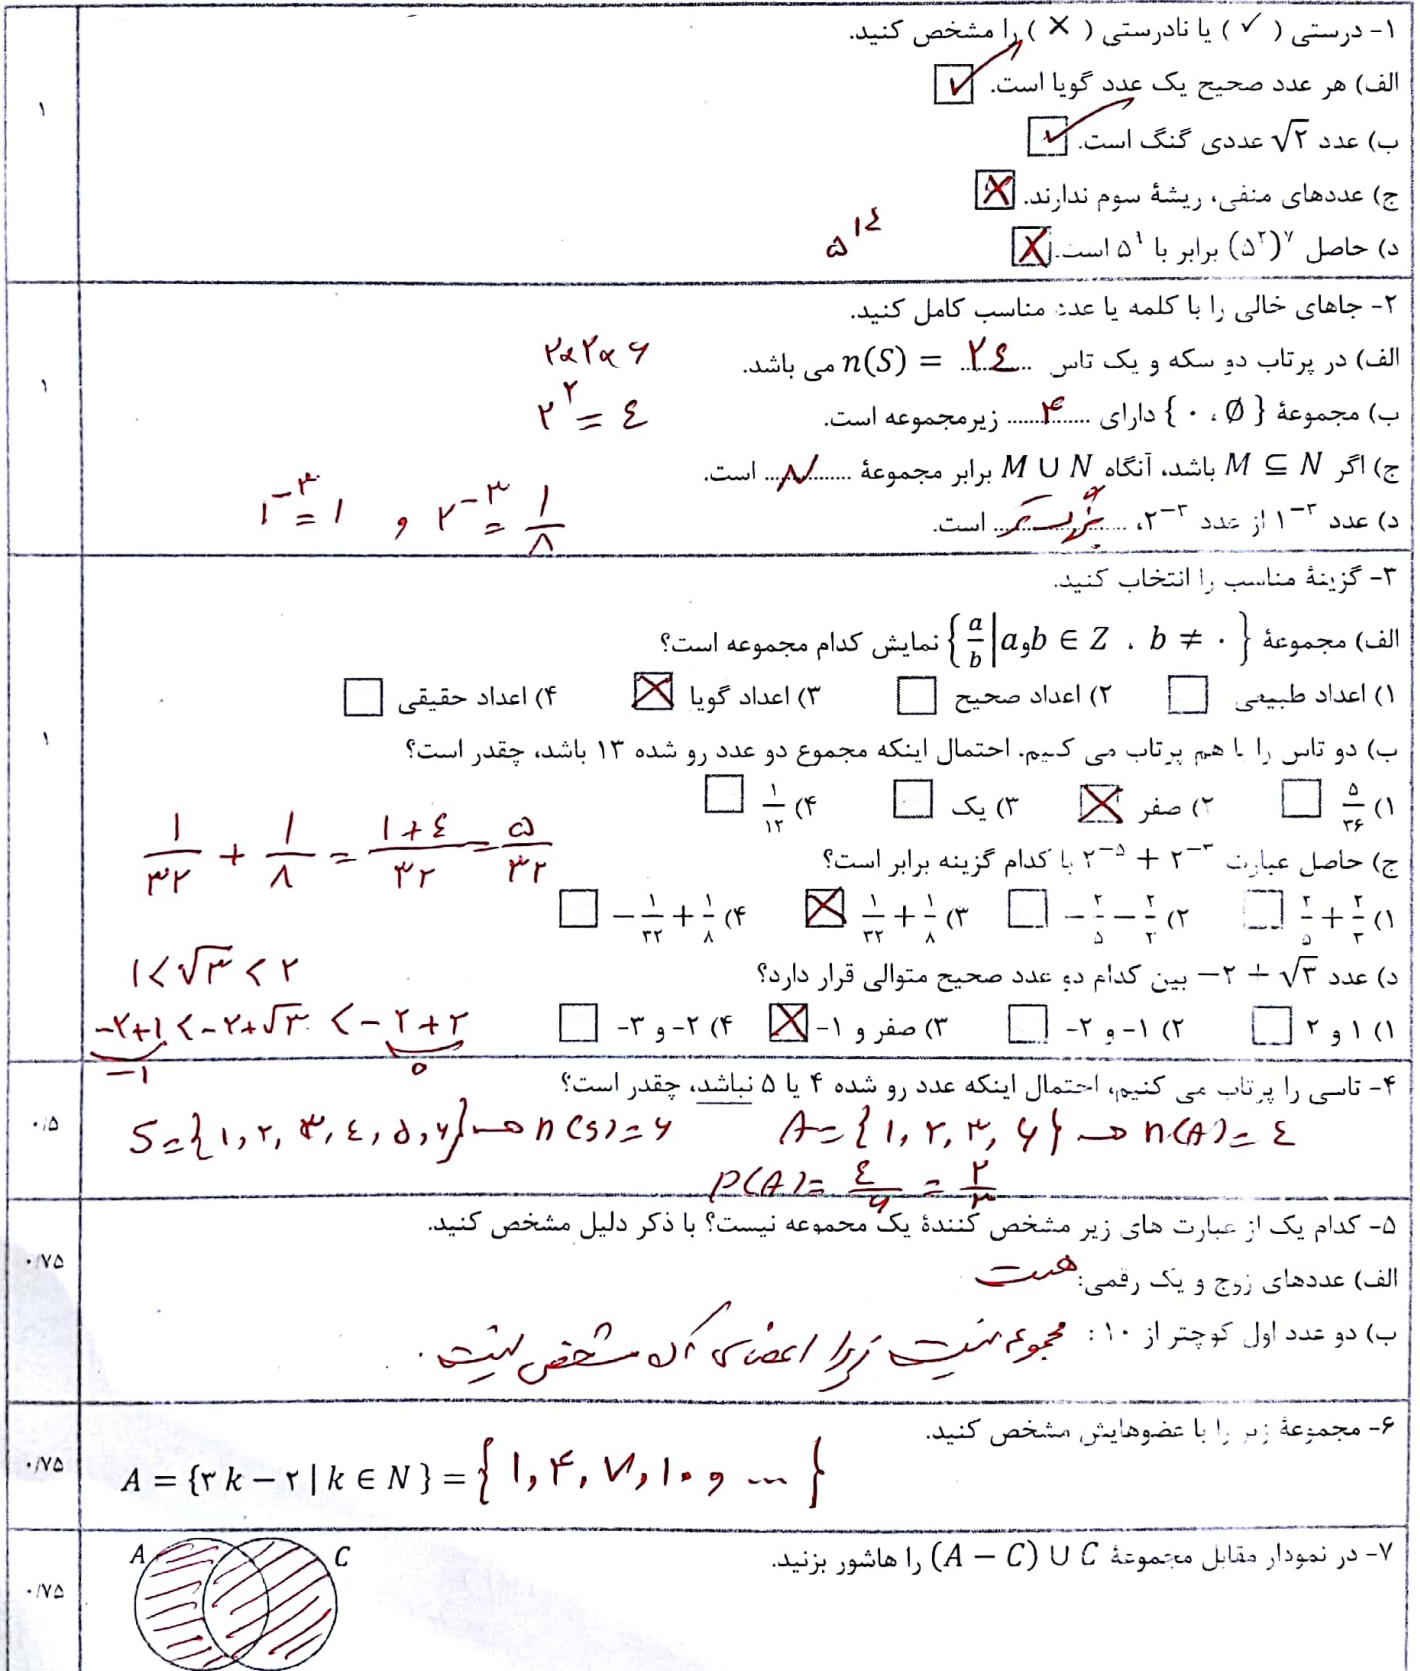 ۱- درستی ( ✓ ) یا نادرستی ( ✕ ) را مشخص کنید.
الف) هر عدد صحیح یک عدد گویا است. ✓
۱
ب) عدد √۲ عددی گنگ است. ✓
ج) عددهای منفی، ریشهٔ سوم ندارند. ✕
د) حاصل (۵^۲)^۷ برابر با ۵^۹ است. ✕ ۵^۱۴
۲- جاهای خالی را با کلمه یا عدد مناسب کامل کنید.
الف) در پرتاب دو سکه و یک تاس n(S) = ۲۴ می باشد. ۲×۲×۶
۱
ب) مجموعهٔ { ∅ ، ۰ } دارای ۴ زیرمجموعه است. ۲^۲ = ۴
ج) اگر M ⊆ N باشد، آنگاه M ∪ N برابر مجموعهٔ N است.
د) عدد ۱^-۳ از عدد ۲^-۳، بزرگتر است. ۱^-۳ = ۱ و ۲^-۳ = ۱/۸
۳- گزینهٔ مناسب را انتخاب کنید.
الف) مجموعهٔ {a/b | a و b ∈ Z ، b ≠ ۰} نمایش کدام مجموعه است؟
۱) اعداد طبیعی ۲) اعداد صحیح ۳) اعداد گویا ✕ ۴) اعداد حقیقی
۱
ب) دو تاس را با هم پرتاب می کنیم. احتمال اینکه مجموع دو عدد رو شده ۱۳ باشد، چقدر است؟
۱) ۵/۳۶ ۲) صفر ✕ ۳) یک ۴) ۱/۱۲
ج) حاصل عبارت ۲^-۵ + ۲^-۳ با کدام گزینه برابر است؟
۱/۳۲ + ۱/۸ = ۱+۴/۳۲ = ۵/۳۲
۱) ۲/۵ + ۲/۳ ۲) -۲/۵ - ۲/۳ ۳) ۱/۳۲ + ۱/۸ ✕ ۴) -۱/۳۲ + ۱/۸
د) عدد -۲ + √۳ بین کدام دو عدد صحیح متوالی قرار دارد؟ ۱ < √۳ < ۲
۱) ۱ و ۲ ۲) -۱ و -۲ ۳) صفر و -۱ ✕ ۴) -۲ و -۳
-۲+۱ < -۲+√۳ < -۲+۲
-۱ ۰
۴- تاسی را پرتاب می کنیم، احتمال اینکه عدد رو شده ۴ یا ۵ نباشد، چقدر است؟
۰/۵
S = {۱, ۲, ۳, ۴, ۵, ۶} → n(S) = ۶ A = {۱, ۲, ۳, ۶} → n(A) = ۴
P(A) = ۴/۶ = ۲/۳
۵- کدام یک از عبارت های زیر مشخص کنندهٔ یک مجموعه نیست؟ با ذکر دلیل مشخص کنید.
۰/۷۵
الف) عددهای زوج و یک رقمی: هست
ب) دو عدد اول کوچتر از ۱۰ : مجموعه نیست زیرا اعضای آن مشخص نیست .
۶- مجموعهٔ زیر را با عضوهایش مشخص کنید.
۰/۷۵
A = {۳k - ۲ | k ∈ N} = {۱, ۴, ۷, ۱۰ و ...}
۷- در نمودار مقابل مجموعهٔ (A - C) ∪ C را هاشور بزنید.
A C
۰/۷۵